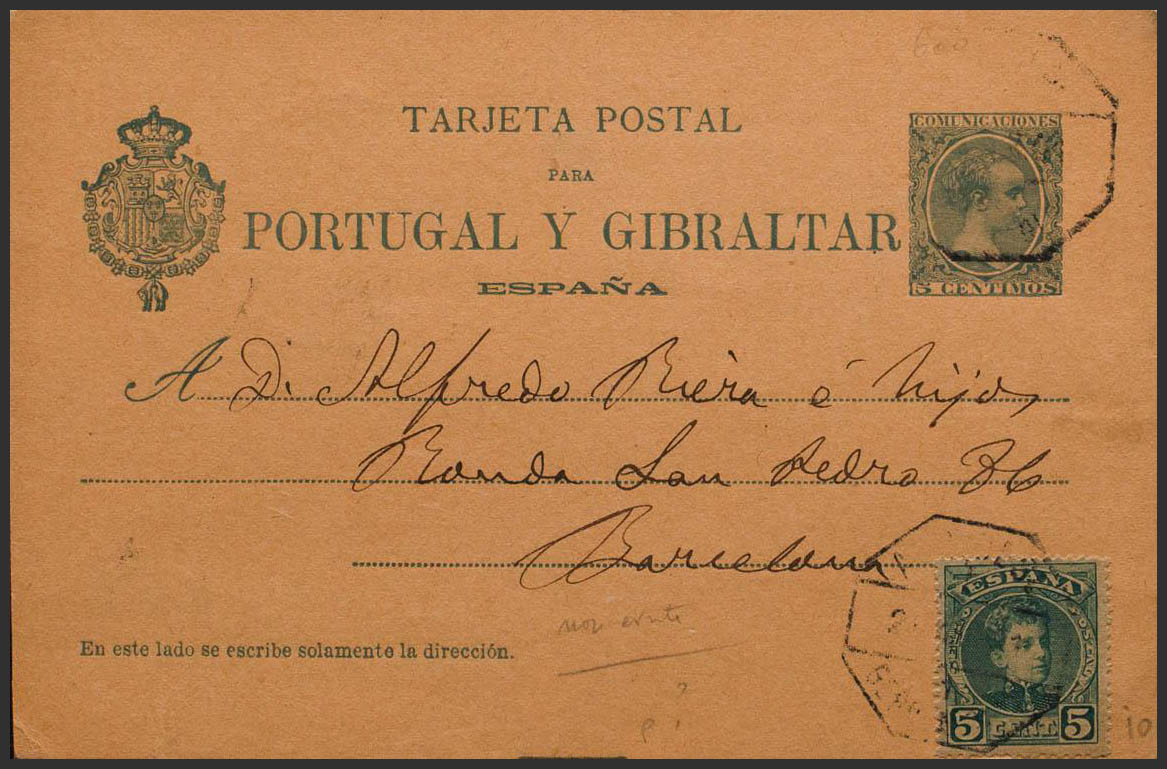 600
TARJETA POSTAL
PARA
PORTUGAL Y GIBRALTAR
ESPAÑA
COMUNICACIONES
5 CENTIMOS
A D. Alfredo Riera é hijos
Ronda San Pedro 36
Barcelona
En este lado se escribe solamente la dirección.
ESPAÑA
5 CENT. 5
10